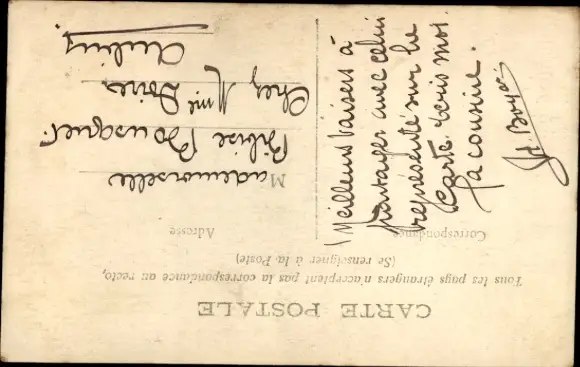 CARTE POSTALE
Tous les pays étrangers n'acceptent pas la correspondance au recto,
(Se renseigner à la Poste)
Correspondance
Adresse
Meilleurs baisers à
partager avec celui
représenté sur la
carte. Ecris moi.
Ta cousine.
Mademoiselle
Bousquet
Chez Mme